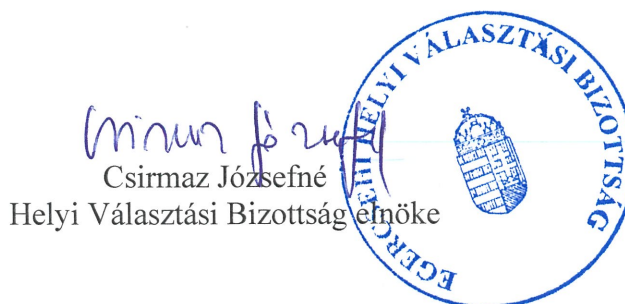 Csirmaz Józsefné
Csirmaz Józsefné
Helyi Választási Bizottság elnöke
EGERCSEHI HELYI VÁLASZTÁSI BIZOTTSÁG